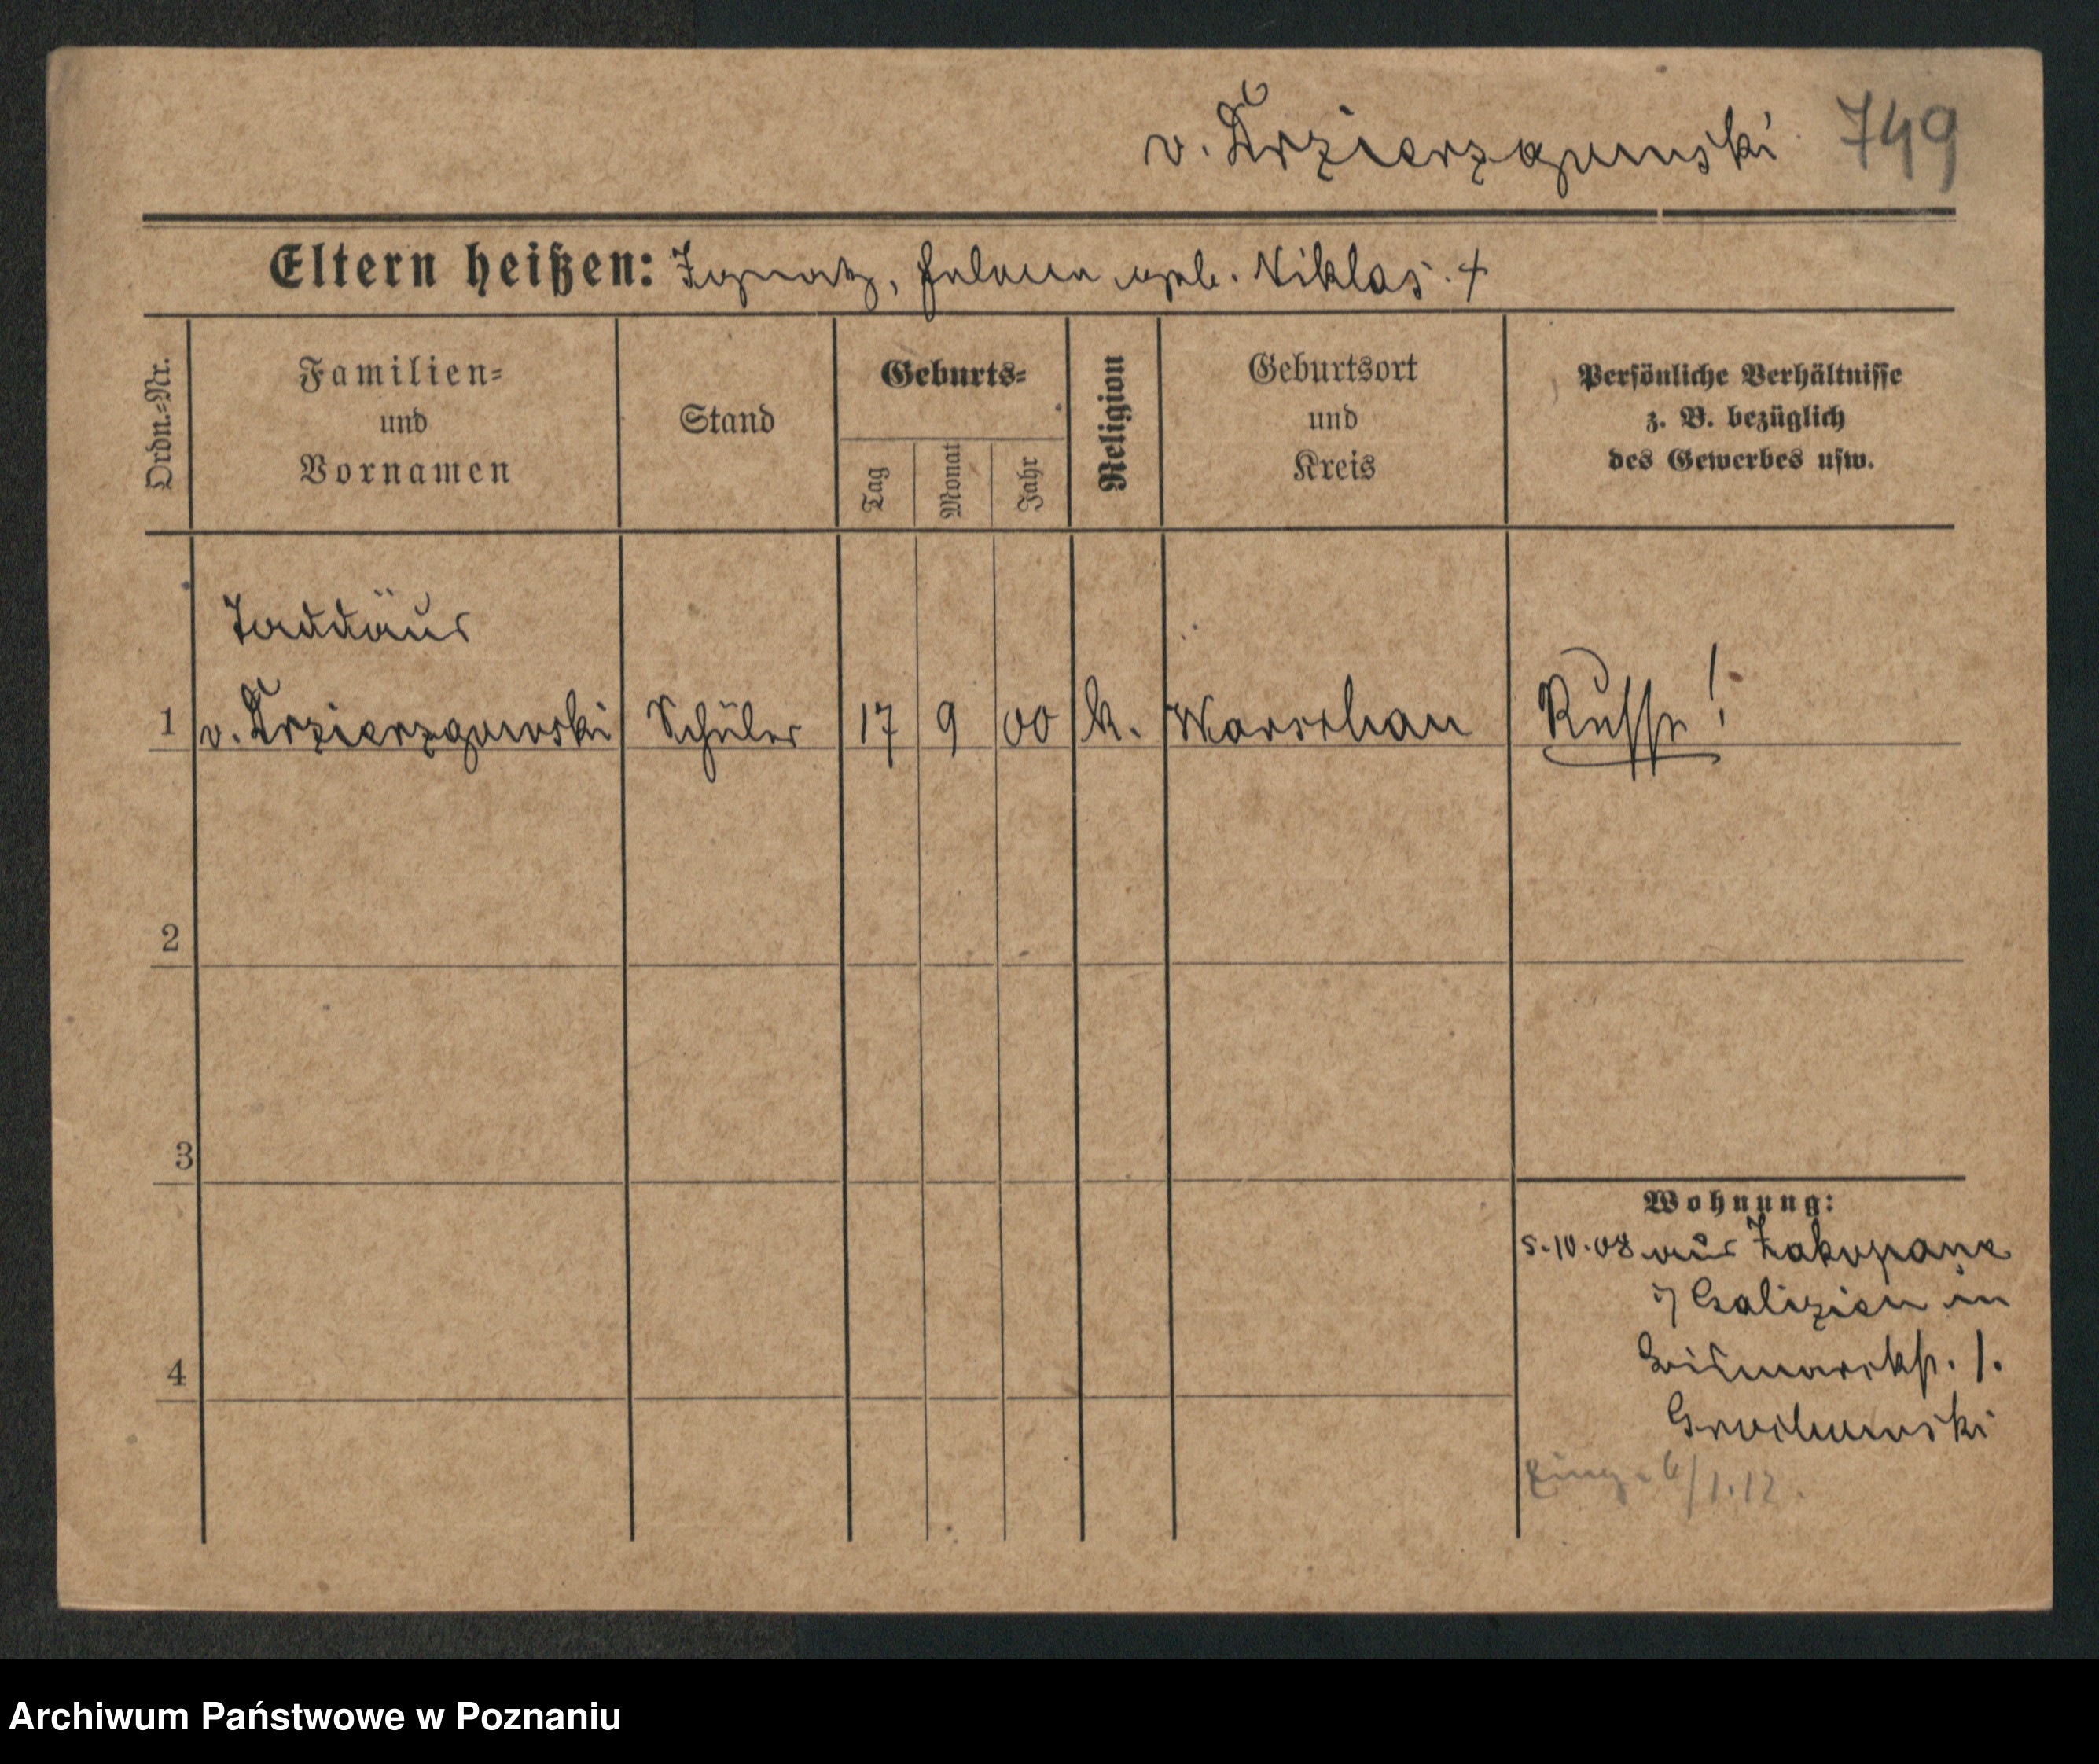 v. Krzierzgowski 749
Eltern heißen: Ignatz, Helena geb. Niklas. +
Ordn.-Nr.
Familien-
und
Vornamen
Stand
Geburts-
Tag
Monat
Jahr
Religion
Geburtsort
und
Kreis
Persönliche Verhältnisse
z. B. bezüglich
des Gewerbes usw.
Taddäus
1 v. Krzierzgowski Schüler 17 9 00 k. Warschau Russe!
2
3
4
Wohnung:
5.10.08 aus Zakopane
i/ Galizien in
Bismarckstr. 1.
/1.12.
Archiwum Państwowe w Poznaniu